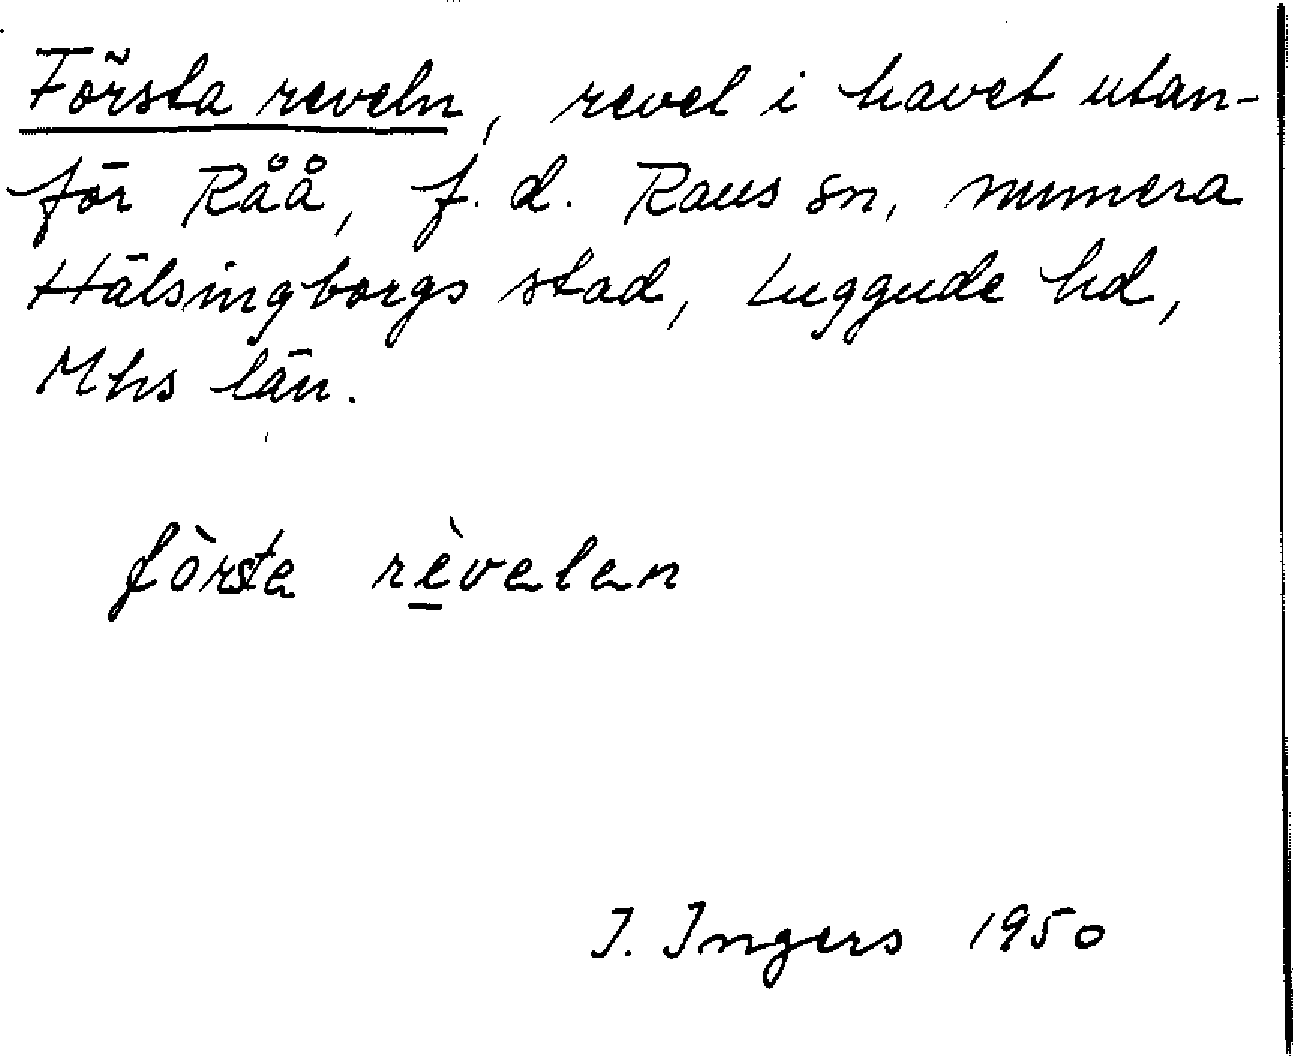 Första reveln, revel i havet utan-
för Råå, f. d. Raus sn, numera
Hälsingborgs stad, Luggude hd,
Mhs län.
fòrsta rèvelen
I. Ingers 1950